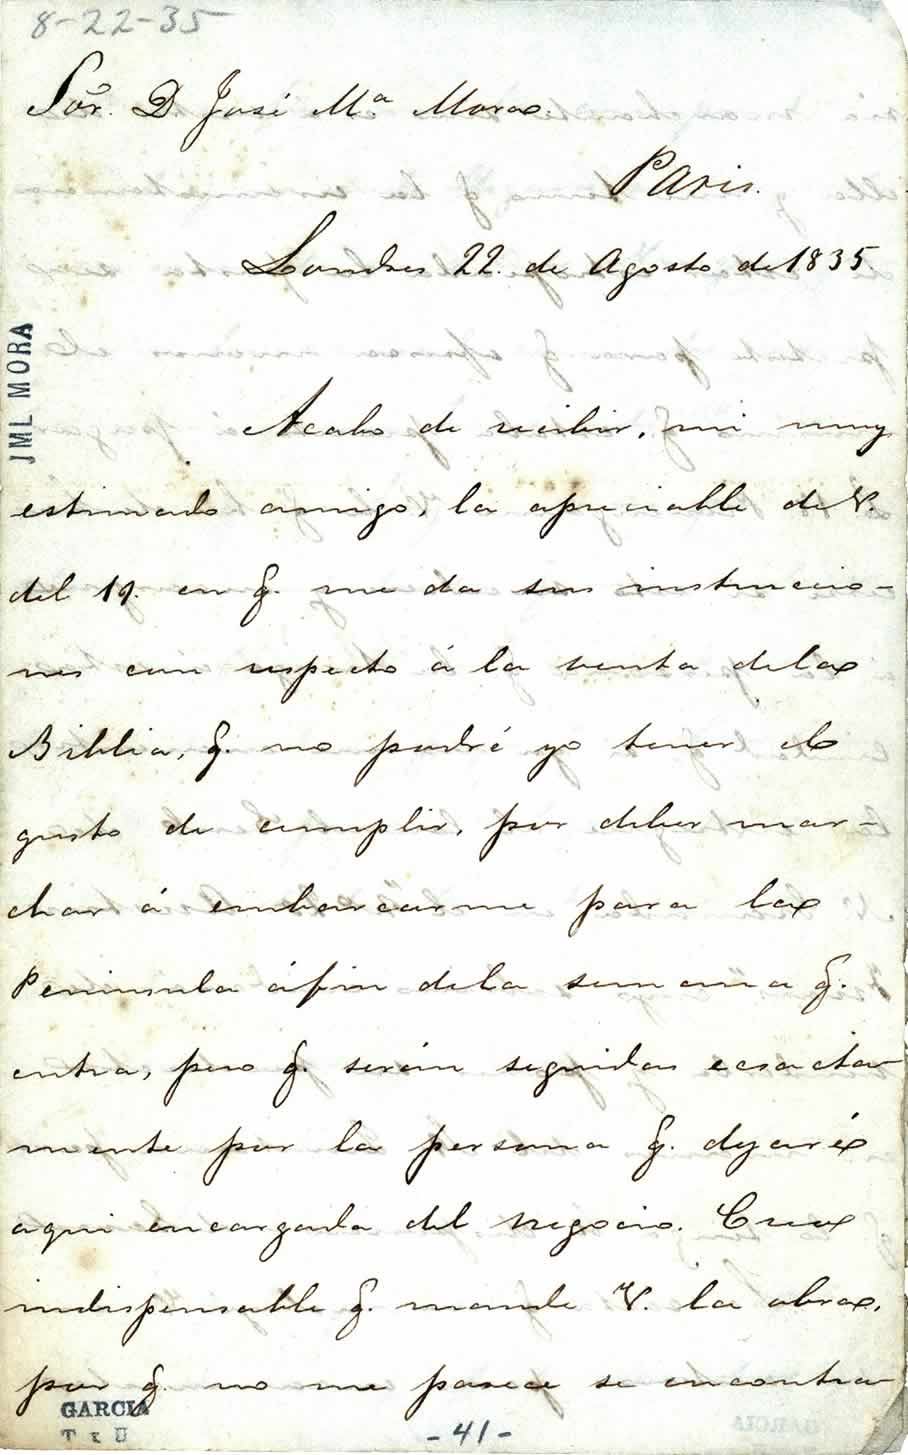 8-22-35
Sór. D José Mª Mora
Paris.
Londres 22. de Agosto de 1835
JML MORA
Acabo de recibir, mi muy
estimado amigo, la apreciable de V.
del 19. en q. me da sus instruccio-
nes con respecto á la venta dela
Biblia, q. no podré yo tener el
gusto de cumplir, por deber mar-
char á embarcarme para la
Peninsula áfin dela semana q.
entra, pero q. serán seguidas ecsacta-
mente por la persona q. dejaré
aqui encargada del negocio. Creo
indispensable q. mande V. la obra,
por q. no me parece se encontra-
GARCIA
- 41 -